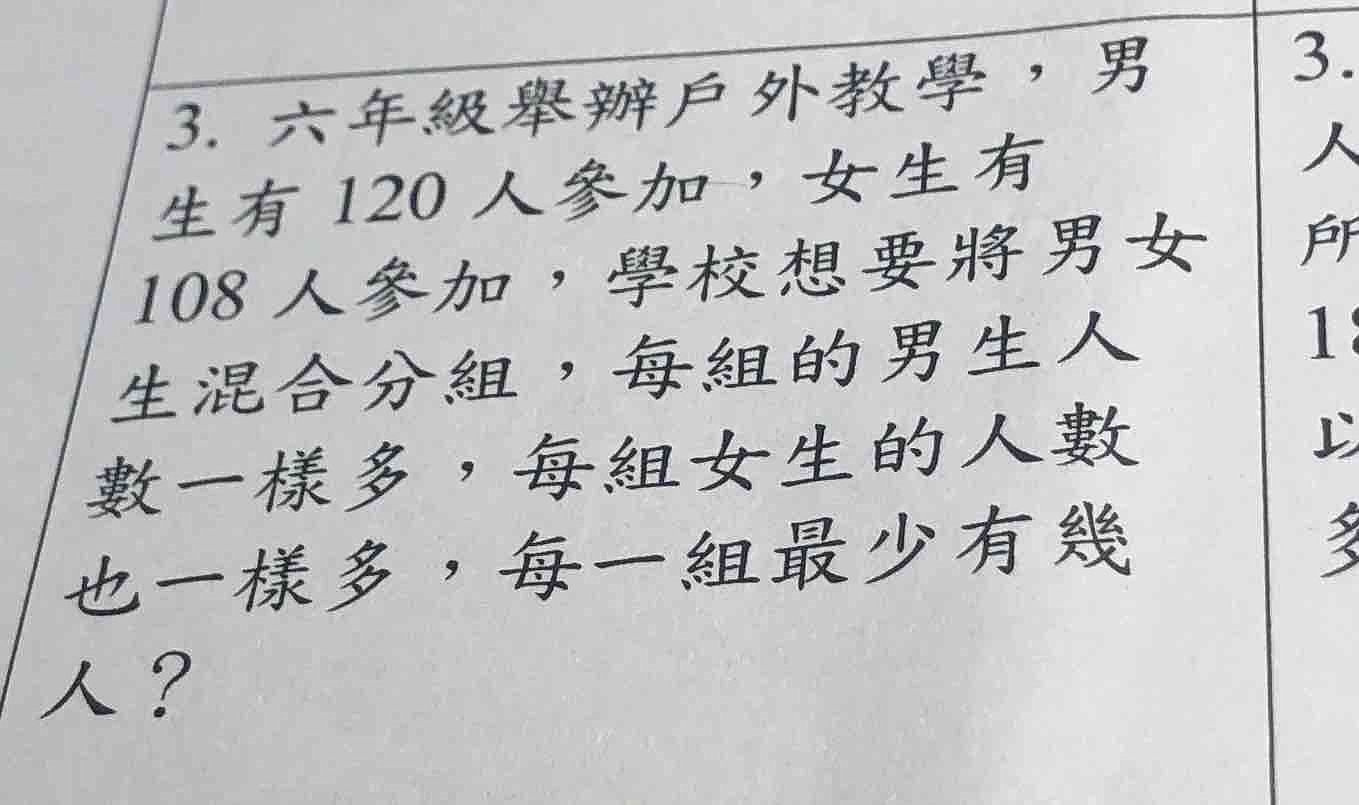 3. 六年級舉辦戶外教學，男
生有 120 人參加，女生有
108 人參加，學校想要將男女
生混合分組，每組的男生人
數一樣多，每組女生的人數
也一樣多，每一組最少有幾
人？
3.
人
所
以